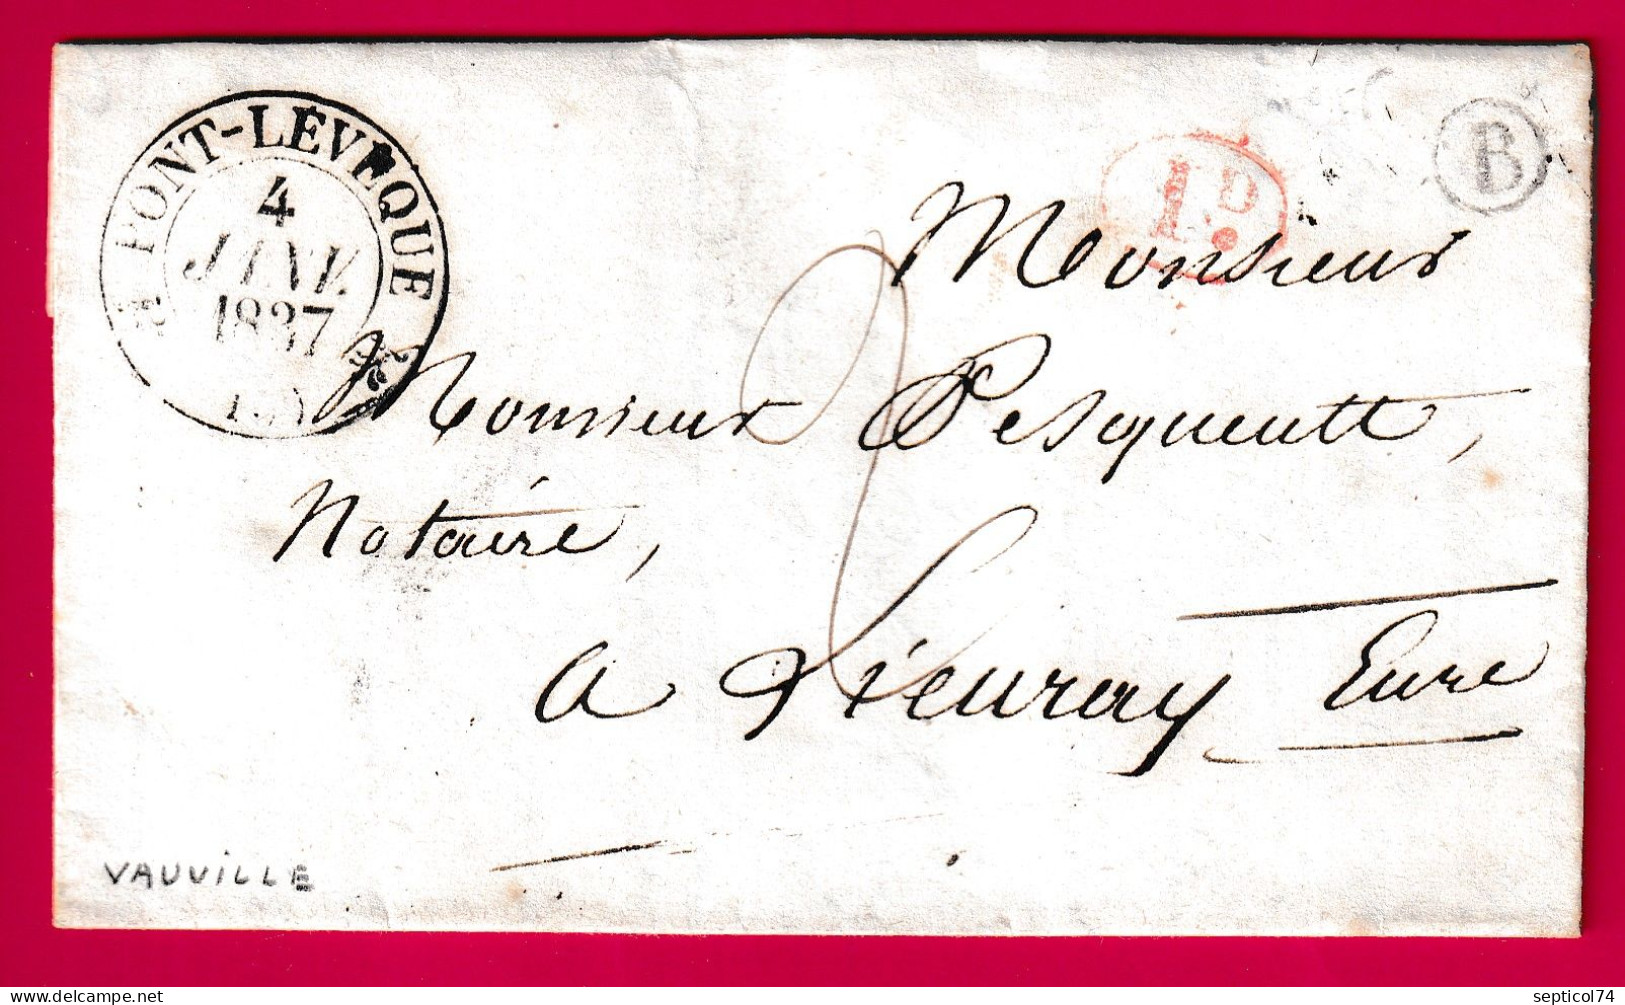 PONT-LEVEQUE
4
JANV.
1837
1.D
B
Monsieur
Monsieur Pesqueult,
Notaire,
a Lieuray Eure
VAUVILLE
delcampe.net
septicol74